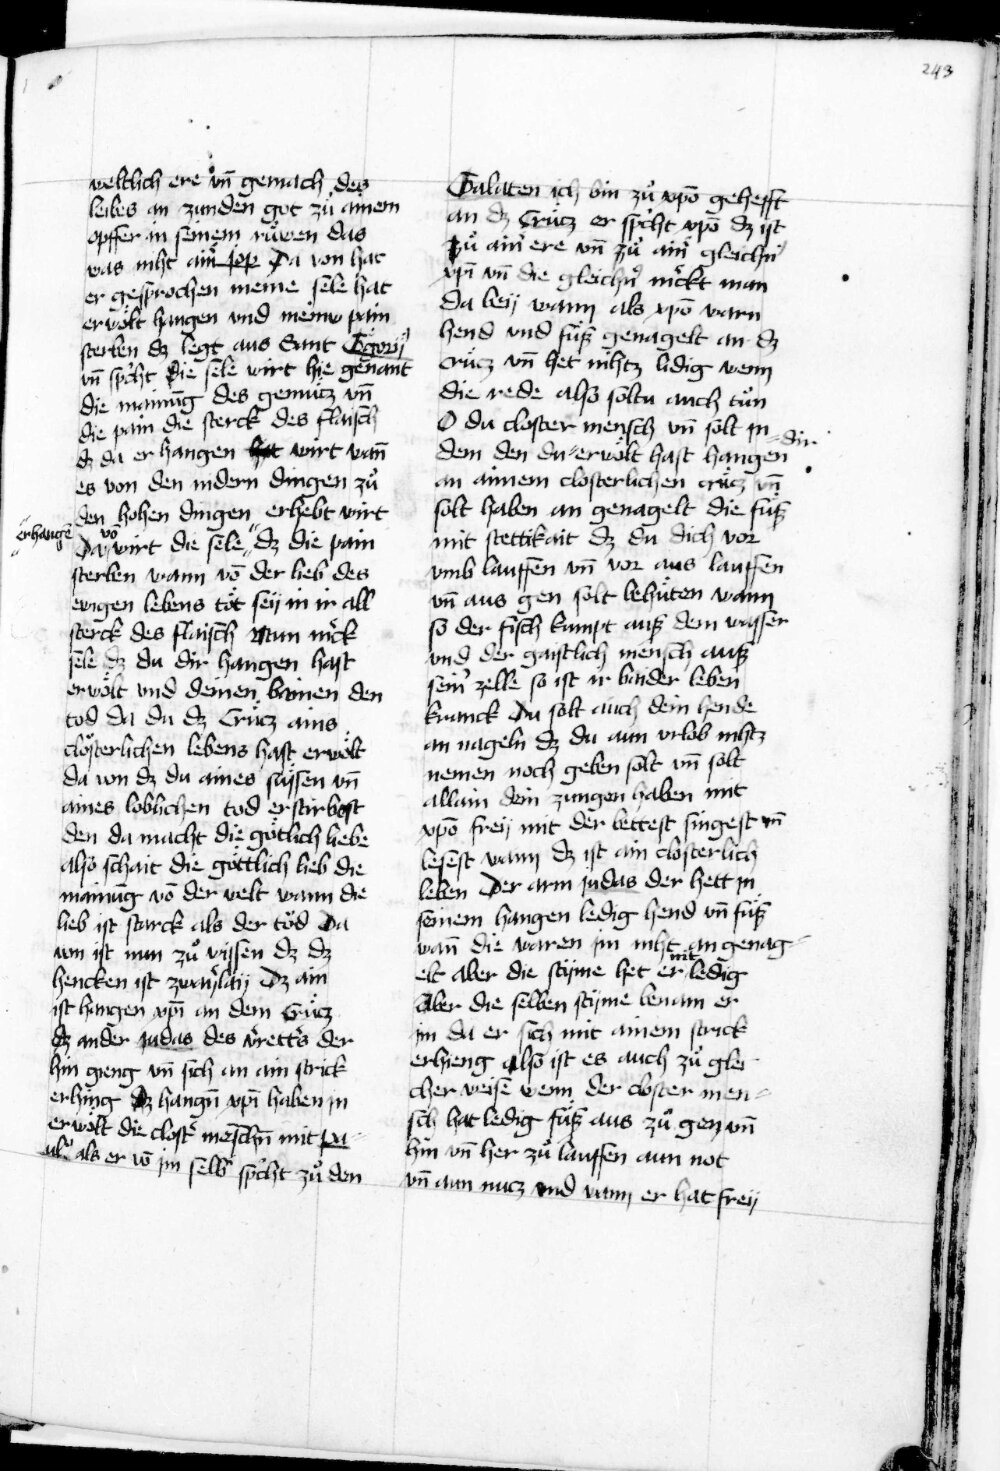 243
weltlich ere vn̄ gemach des
leibes an zunden got zů ainem
opffer in seinem růwen das
was niht ain̄ Jop Da von hat
er gesprochen meine sele hat
erwölt hangen vnd meinw pain
sterben dz legt aus Sant Ggorij
vn̄ spͨht die sele wirt hie genant
die mainūg des gemütz vn̄
die pain die sterck des flaisch
dz da er hangen hat wirt wan̄
es von den nidern dingen zů
den hohen dingen erhebt wirt
erhangē
Da vō wirt die sele dz die pain
sterben wann vō der lieb des
ewigen lebens töt seij in ir all
sterck des flaisch Nun mͤck
sele dz du dir hangen hast
erwölt vnd deinen bainen den
tod da du dz Crücz ains
clösterlichen lebens hast erwölt
da von dz du aines süssen vn̄
aines loblichen tod erstirbest
den da macht die götlich liebe
also schait die göttlich lieb die
mainūg vō der welt wann die
lieb ist starck als der töd Da
von ist nun zů wissen dz dz
hencken ist zwaẏlaij Dz ain
ist hangen xp̄i an dem Crücz
dz ander judas des v̄rett̄s der
hin gieng vn̄ sich an ain strick
erhing Dz hangn̄ xp̄i haben in
erwölt die clost̄ menschn̄ mit pa-
uls als er vō im selb̄ spͨht zů den
Galaten ich bin zů xpō gehefft
an dz Crücz er spͨht xpō dz ist
zů ain̄ ere vn̄ zů ain̄ gleichn̄
xp̄i vn̄ die gleichn̄ mͤckt man
da beij wann als xpō warn
hend vnd füsz genagelt an dz
crücz vn̄ het nihtz ledig wenn
die rede also soltu auch tůn
O du closter mensch vn̄ solt in
dem den du erwölt hast hangen
dir
an ainem closterlichen crücz vn̄
solt haben an genagelt die füsz
mit stettikait dz du dich vor
vmb lauffen vn̄ vor aus lauffen
vn̄ aus gen solt behüten wann
so der fisch kumpt ausz dem wasser
vnd der gaistlich mensch ausz
sein̄ zelle so ist ir baider leben
kranck Du solt auch dein hende
an nageln dz du aun vrlob nihtz
nemen noch geben solt vn̄ solt
allain dein zungen haben mit
xpō freij mit der bettest singest vn̄
lesest wann dz ist ain closterlich
leben Der arm judas der hett in
seinem hangen ledig hend vn̄ füsz
wan̄ die waren im niht an genag-
elt aber die stijme het er nit ledig
Aber die selben stijme benam er
im da er sich mit ainem strick
erhieng also ist es auch zů glei
cher weise wenn der closter men-
sch hat ledig füsz aus zů gen vn̄
hin vn̄ her zů lauffen aun not
vn̄ aun nucz vnd wann er hat freij